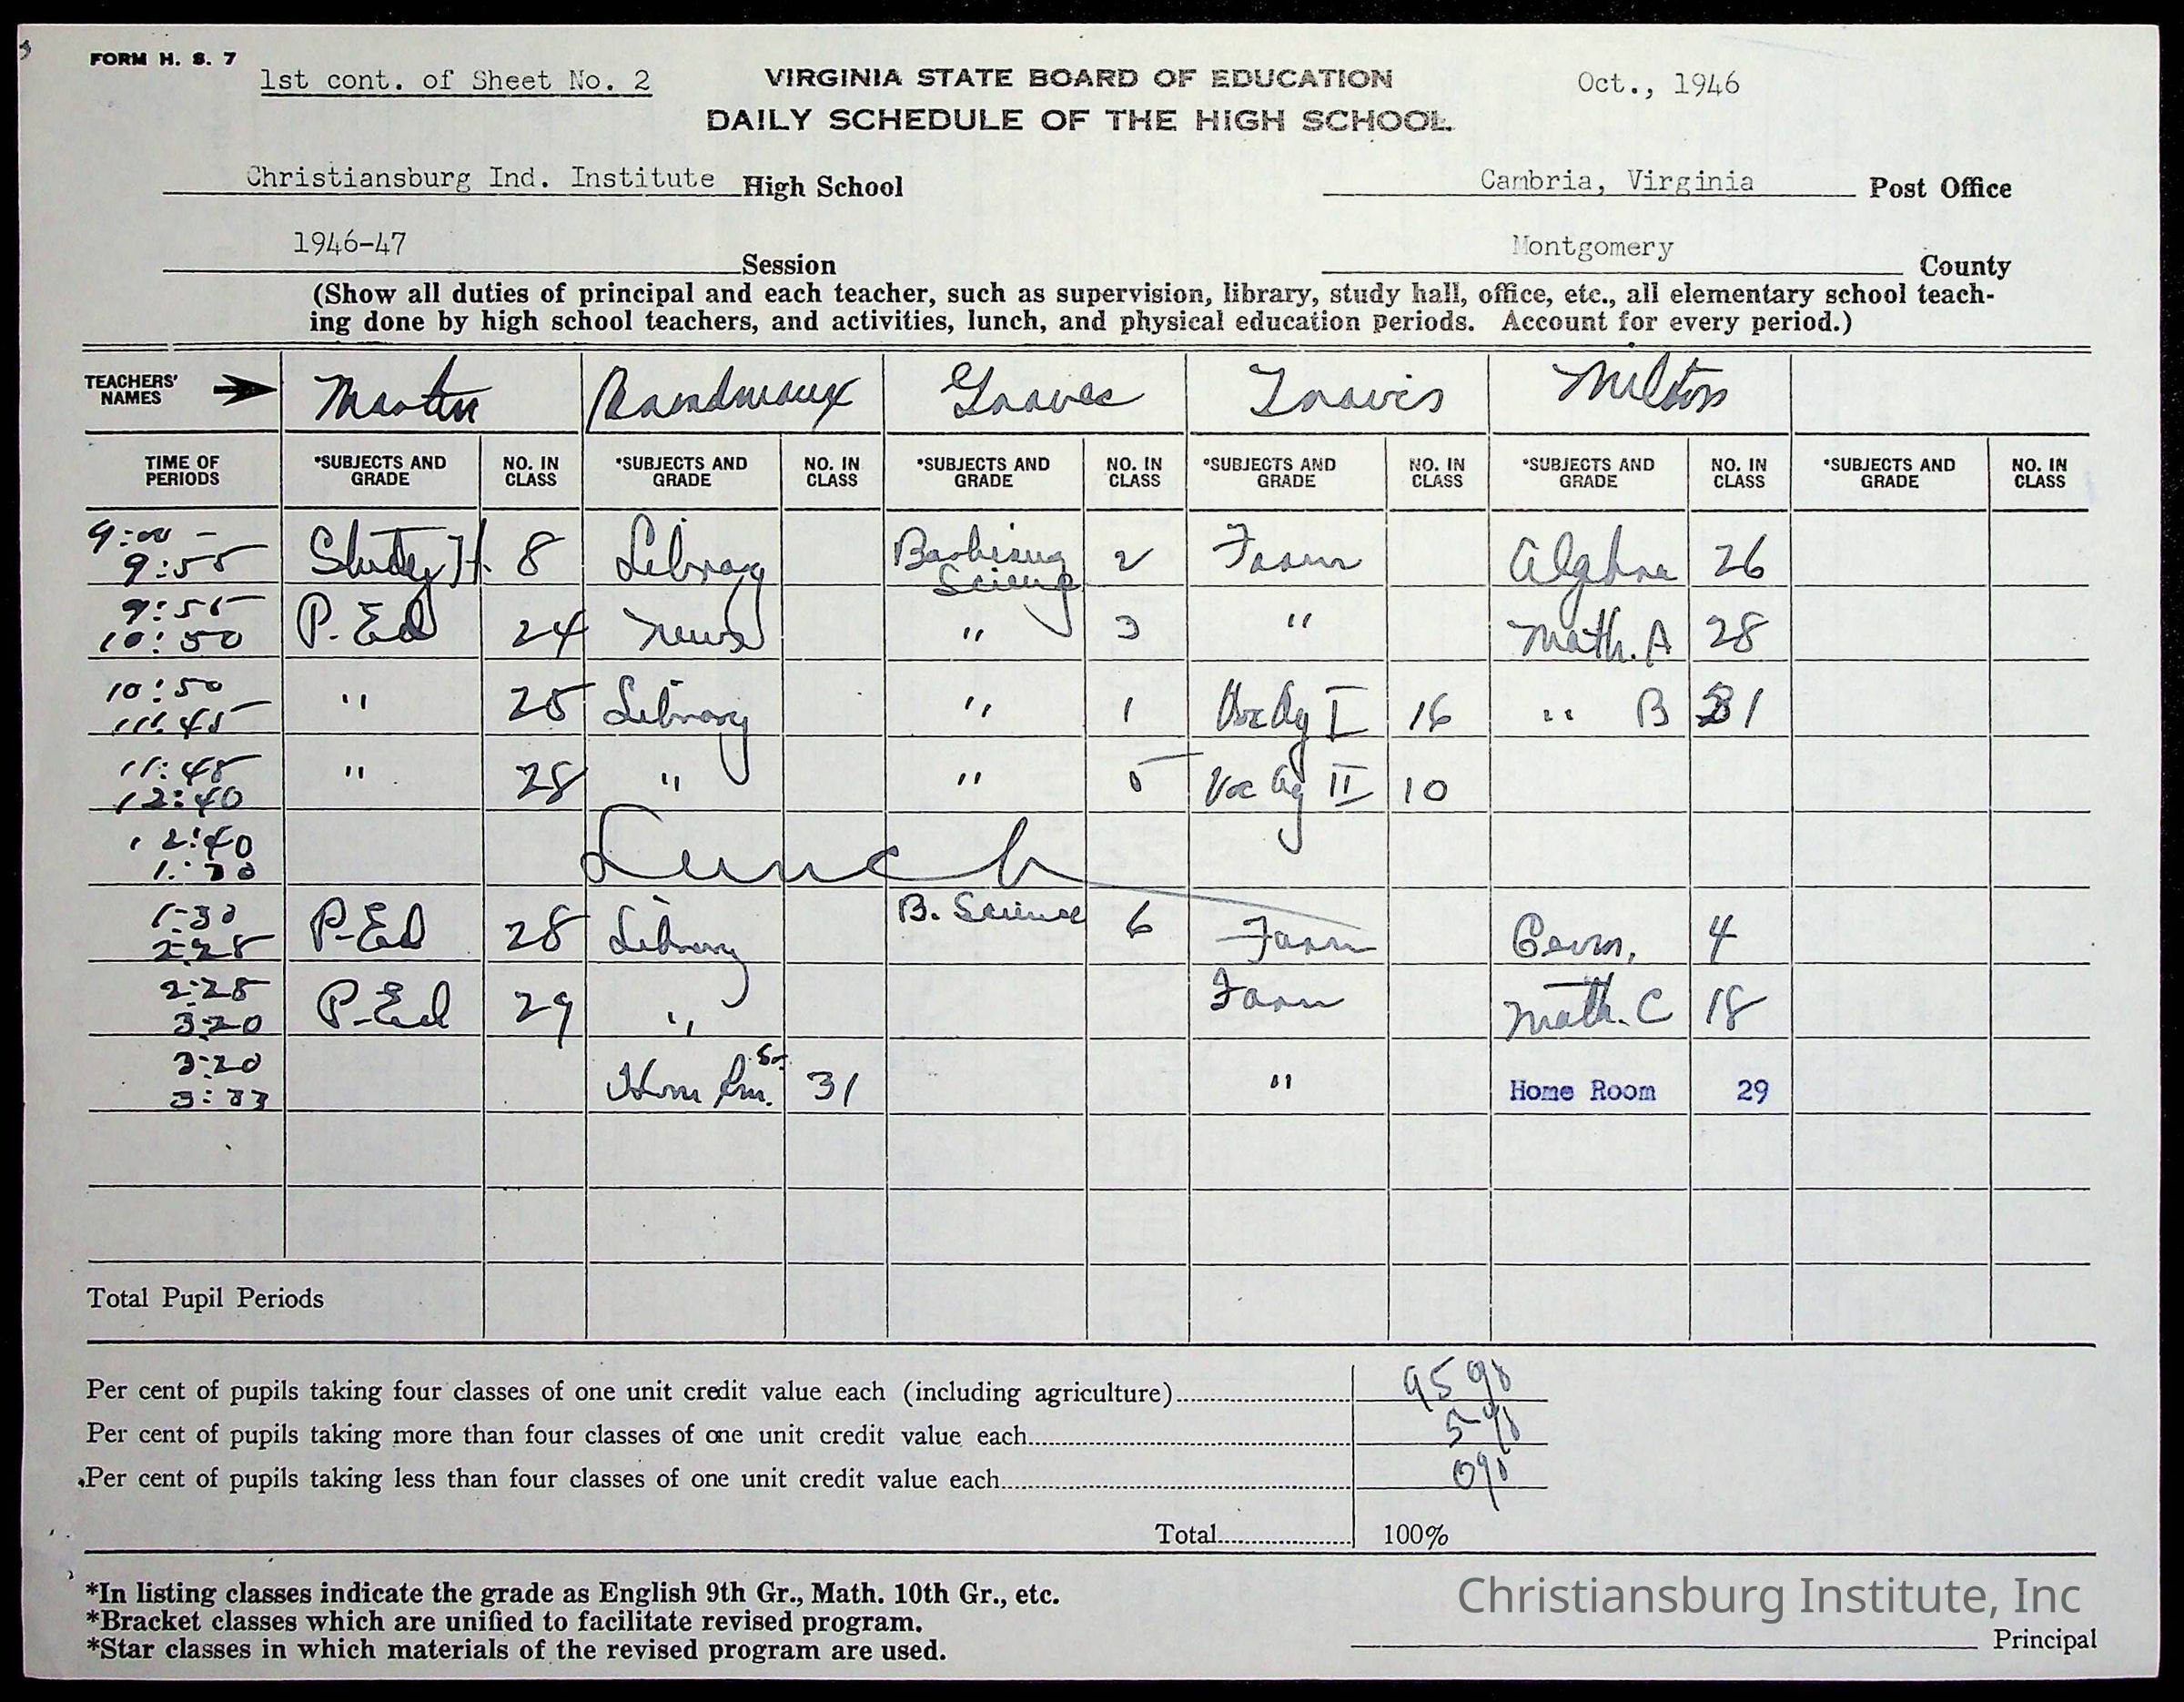 FORM H. S. 7
1st cont. of Sheet No. 2
VIRGINIA STATE BOARD OF EDUCATION
Oct., 1946
DAILY SCHEDULE OF THE HIGH SCHOOL
Christiansburg Ind. Institute High School
Cambria, Virginia Post Office
1946-47 Session
Montgomery County
(Show all duties of principal and each teacher, such as supervision, library, study hall, office, etc., all elementary school teach-
ing done by high school teachers, and activities, lunch, and physical education periods. Account for every period.)
TEACHERS' NAMES Martin Graves Travis Milton
TIME OF PERIODS *SUBJECTS AND GRADE NO. IN CLASS *SUBJECTS AND GRADE NO. IN CLASS *SUBJECTS AND GRADE NO. IN CLASS *SUBJECTS AND GRADE NO. IN CLASS *SUBJECTS AND GRADE NO. IN CLASS *SUBJECTS AND GRADE NO. IN CLASS
9:00 - 9:55 Study H. 8 Library Science 2 Farm 26
9:55 10:50 P. Ed 24 News " 3 " Math. A 28
10:50 11:45 " 25 Library " 1 Voc Ag I 16 " B 31
11:45 12:40 " 28 " " 5 Voc Ag II 10
12:40 1:30 Lunch
1-30 2-25 P-Ed 28 Library B. Science 6 Farm 4
2:25 3:20 P-Ed 29 " Farm Math. C 18
3:20 3:33 Hom Rm. 31 " Home Room 29
Total Pupil Periods
Per cent of pupils taking four classes of one unit credit value each (including agriculture) 95%
Per cent of pupils taking more than four classes of one unit credit value each 5%
Per cent of pupils taking less than four classes of one unit credit value each 0%
Total 100%
*In listing classes indicate the grade as English 9th Gr., Math. 10th Gr., etc.
*Bracket classes which are unified to facilitate revised program.
*Star classes in which materials of the revised program are used.
Christiansburg Institute, Inc
Principal